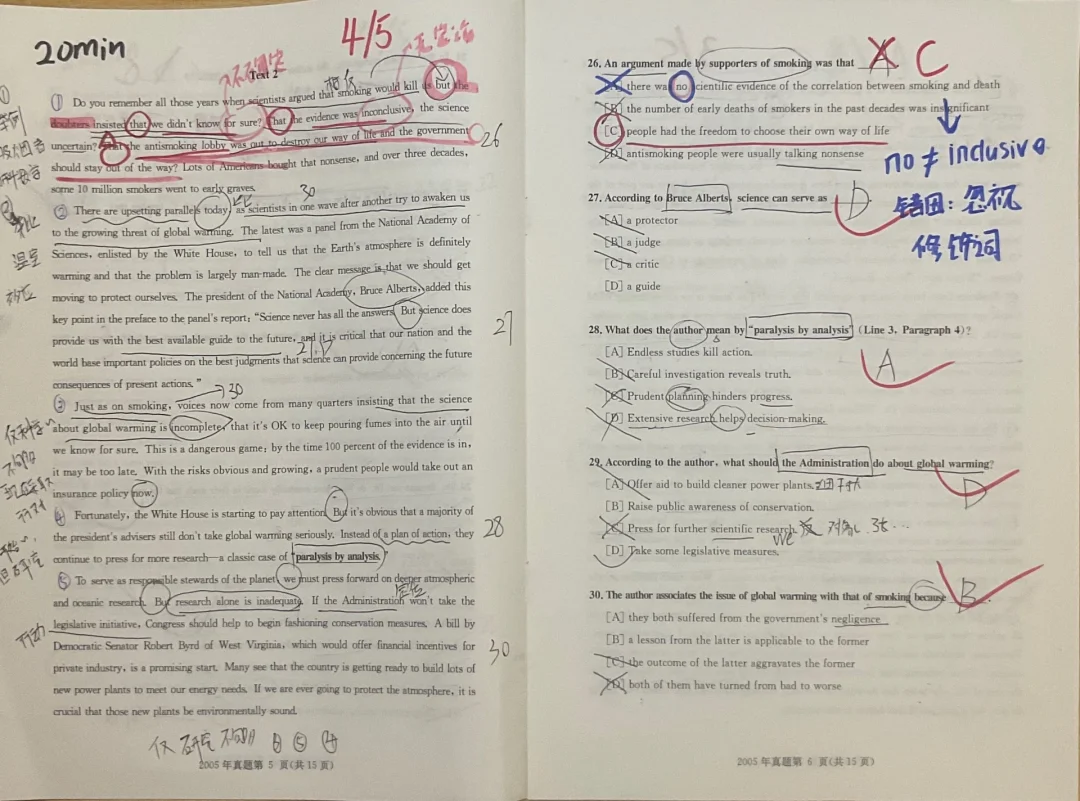 20min
4/5
Text 2
① Do you remember all those years when scientists argued that smoking would kill us but the
doubters insisted that we didn't know for sure? That the evidence was inconclusive, the science
uncertain? That the antismoking lobby was out to destroy our way of life and the government
26
should stay out of the way? Lots of Americans bought that nonsense, and over three decades,
some 10 million smokers went to early graves.
30
② There are upsetting parallels today, as scientists in one wave after another try to awaken us
to the growing threat of global warming. The latest was a panel from the National Academy of
Sciences, enlisted by the White House, to tell us that the Earth's atmosphere is definitely
warming and that the problem is largely man-made. The clear message is that we should get
moving to protect ourselves. The president of the National Academy, Bruce Alberts, added this
key point in the preface to the panel's report: "Science never has all the answers. But science does
27
provide us with the best available guide to the future, and it is critical that our nation and the
world base important policies on the best judgments that science can provide concerning the future
consequences of present actions."
30
③ Just as on smoking, voices now come from many quarters insisting that the science
about global warming is incomplete, that it's OK to keep pouring fumes into the air until
we know for sure. This is a dangerous game: by the time 100 percent of the evidence is in,
it may be too late. With the risks obvious and growing, a prudent people would take out an
insurance policy now.
④ Fortunately, the White House is starting to pay attention. But it's obvious that a majority of
the president's advisers still don't take global warming seriously. Instead of a plan of action, they
28
continue to press for more research—a classic case of "paralysis by analysis."
⑤ To serve as responsible stewards of the planet, we must press forward on deeper atmospheric
and oceanic research. But research alone is inadequate. If the Administration won't take the
legislative initiative, Congress should help to begin fashioning conservation measures. A bill by
行动
Democratic Senator Robert Byrd of West Virginia, which would offer financial incentives for
30
private industry, is a promising start. Many see that the country is getting ready to build lots of
new power plants to meet our energy needs. If we are ever going to protect the atmosphere, it is
crucial that those new plants be environmentally sound.
2005 年真题第 5 页(共15页)
26. An argument made by supporters of smoking was that
C
[A] there was no scientific evidence of the correlation between smoking and death
[B] the number of early deaths of smokers in the past decades was insignificant
[C] people had the freedom to choose their own way of life
[D] antismoking people were usually talking nonsense
no ≠ inclusive
错因: 忽视
修饰词
27. According to Bruce Alberts, science can serve as
D
[A] a protector
[B] a judge
[C] a critic
[D] a guide
28. What does the author mean by "paralysis by analysis" (Line 3, Paragraph 4)?
A
[A] Endless studies kill action.
[B] Careful investigation reveals truth.
[C] Prudent planning hinders progress.
[D] Extensive research helps decision-making.
29. According to the author, what should the Administration do about global warming?
D
[A] Offer aid to build cleaner power plants.
[B] Raise public awareness of conservation.
[C] Press for further scientific research.
we
[D] Take some legislative measures.
30. The author associates the issue of global warming with that of smoking because
B
[A] they both suffered from the government's negligence
[B] a lesson from the latter is applicable to the former
[C] the outcome of the latter aggravates the former
[D] both of them have turned from bad to worse
2005 年真题第 6 页(共15页)